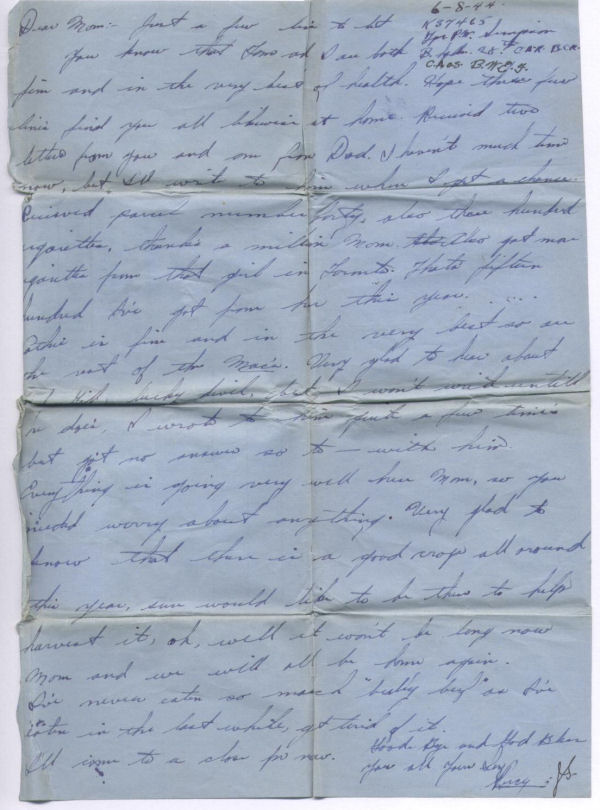 6-8-44
K57465
Pte. P. Simpson
B Coy. 28th CAR BCR
C.A.O.S. B.W.E.F.
Dear Mom:- Just a few lines to let
you know that Tom and I are both
fine and in the very best of health. Hope these few
lines find you all likewise at home. Received two
letters from you and one from Dad. I haven't much time
now, but I'll write to him when I get a chance.
Received parcel number forty, also three hundred
cigarettes, thanks a million Mom. Also got more
cigarettes from that girl in Toronto. Thats fifteen
hundred I've got from her this year. . . . .
is fine and in the very best so are
the rest of the Macs. Very glad to hear about
lucky devil, I won't untill
he does, I wrote to him quite a few times
but got no answer so to — with him.
Everything is going very well here Mom, so you
needed worry about anything. Very glad to
know that there is a good crop all around
this year, sure would like to be there to help
harvest it, oh, well it won't be long now
Mom and we will all be home again.
I've never eaten so much "bully beef" as I've
eaten in the last while, get tired of it.
I'll come to a close for now.
Good Bye and God Bless
You all Your Son
Percy